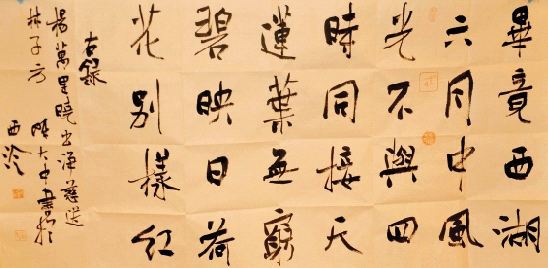 畢竟西湖
六月中風
光不與四
時同接天
蓮葉無窮
碧映日荷
花別樣紅
古錄
楊萬里曉出淨慈送
林子方 大中書於
西泠